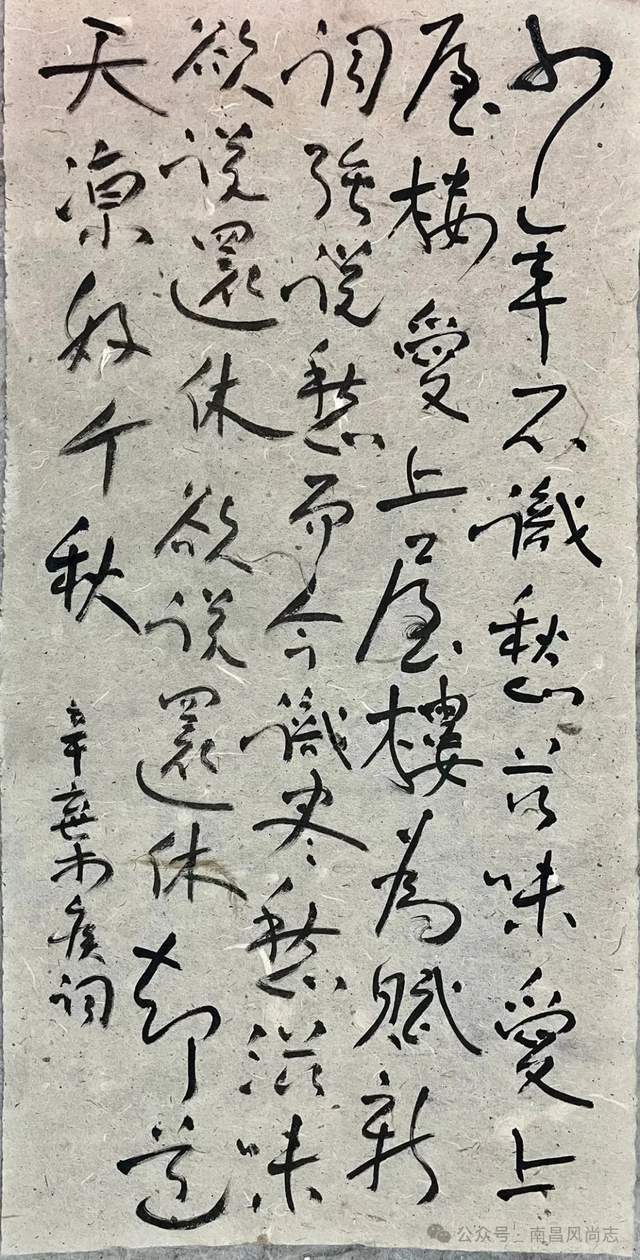 少年不識愁滋味愛上
层楼愛上层樓為賦新
词强说愁而今識尽愁滋味
欲说還休欲说還休却道
天凉好个秋
辛棄疾词
公众号·南昌风尚志